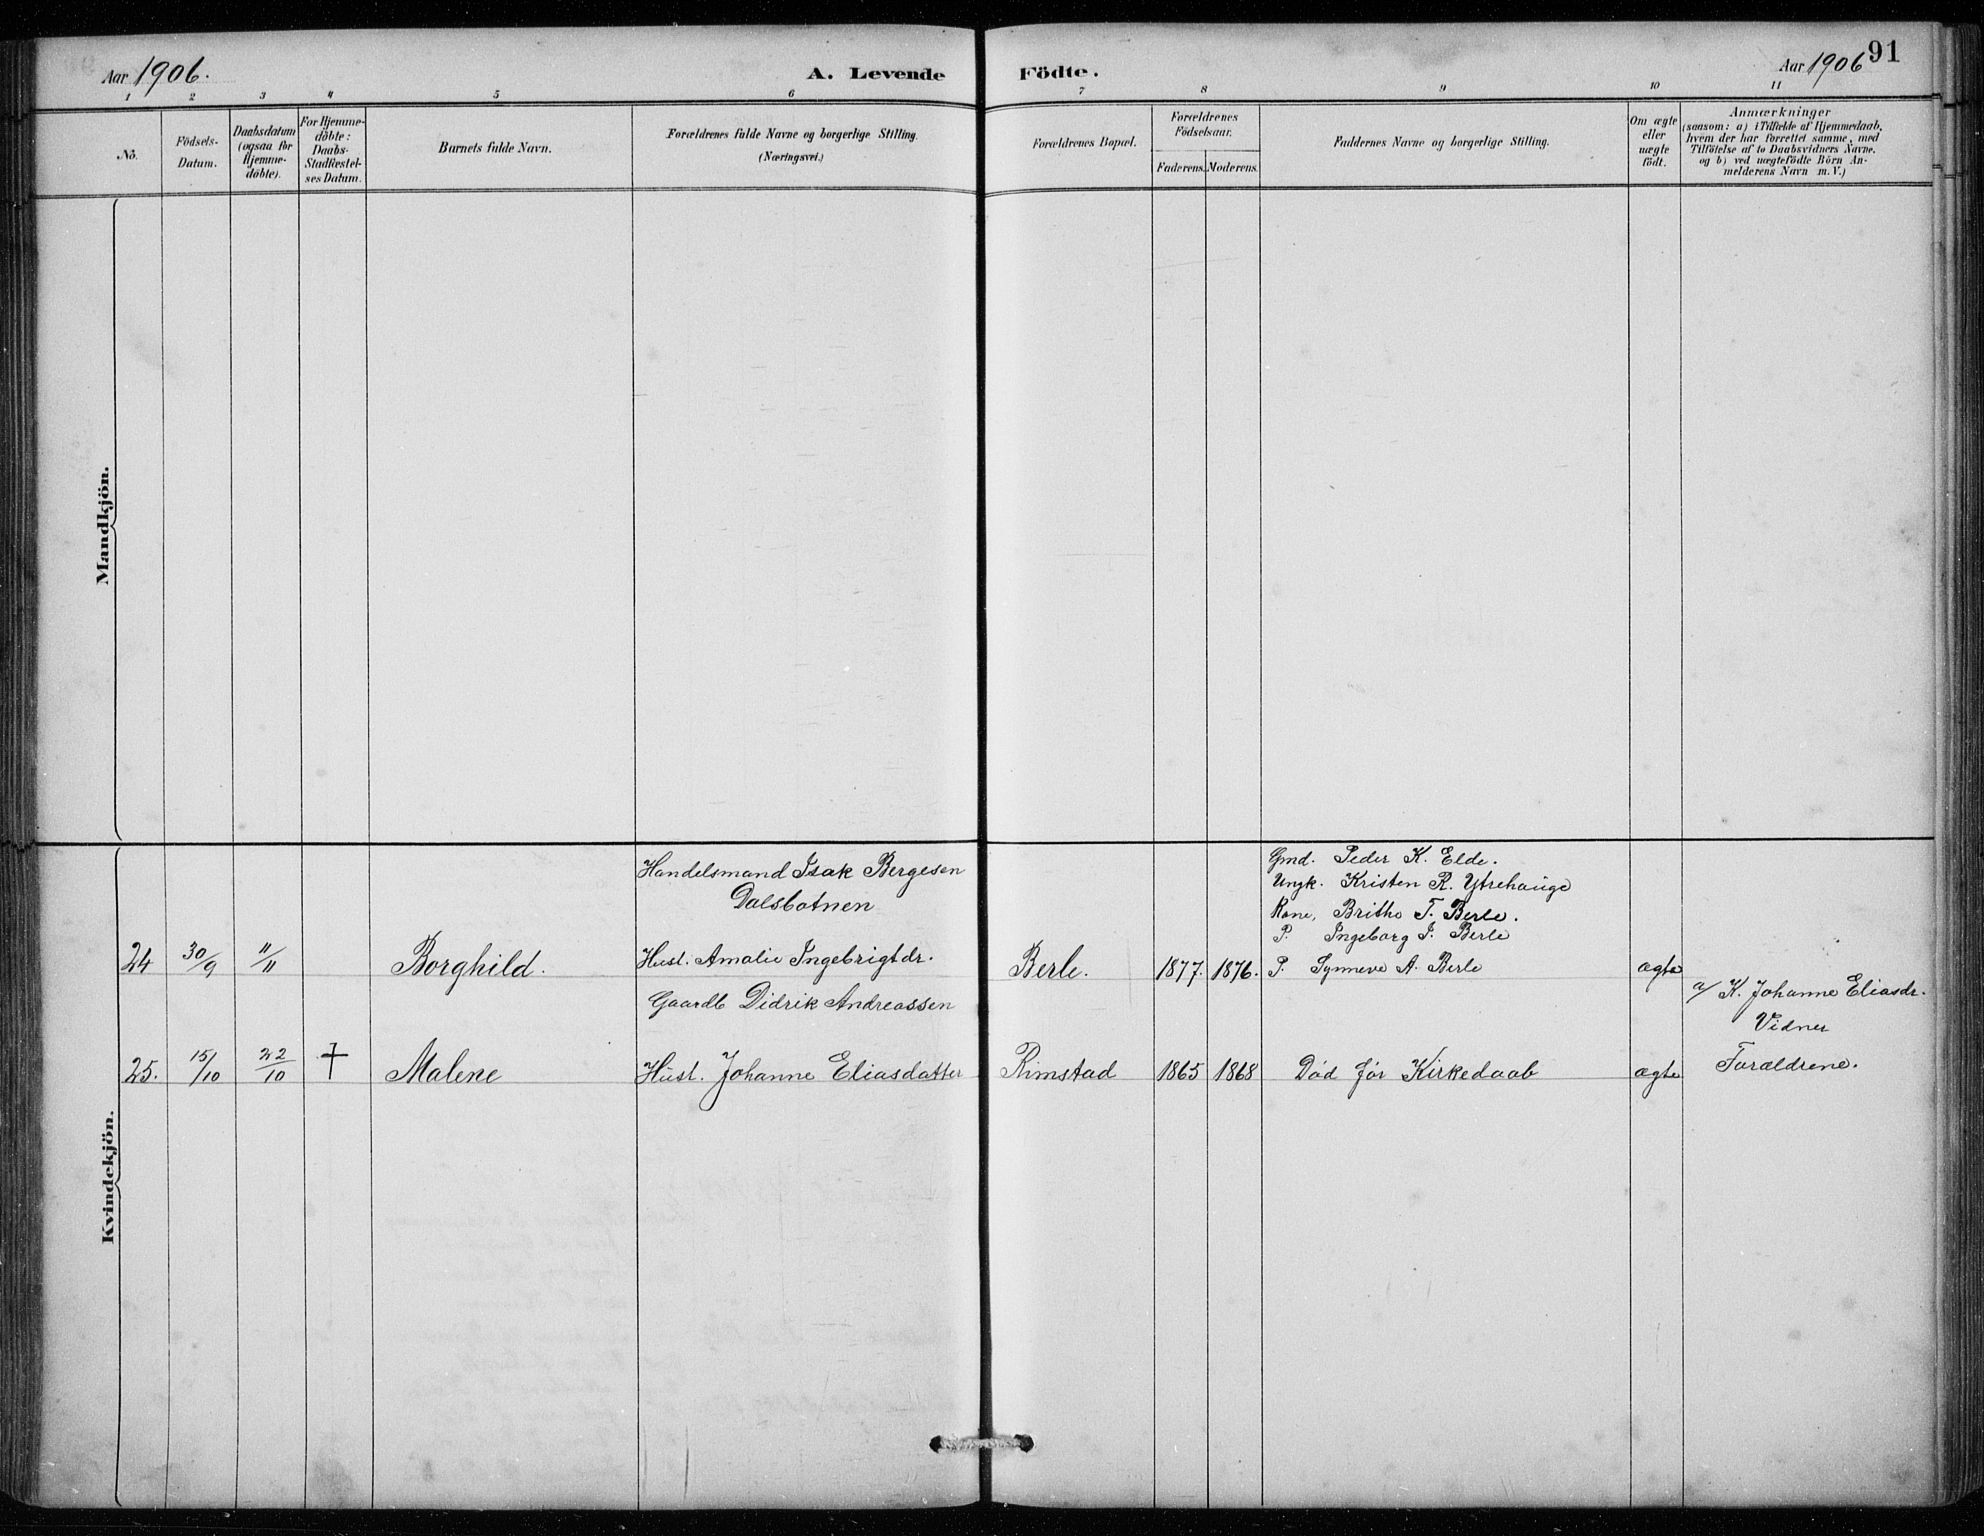 Aar 1906.
A. Levende
Födte.
Aar 1906
91
1 2 3 4 5 6 7 8 9 10 11
No.
Födsels-
Datum.
Daabsdatum
(ogsaa for
Hjemme-
döbte).
For Hjemme-
döbte:
Daabs-
Stadfæstel-
ses Datum.
Barnets fulde Navn.
Forældrenes fulde Navne og borgerlige Stilling.
(Næringsvei.)
Forældrenes Bopæl.
Forældrenes
Födselsaar.
Faderens. Moderens.
Faddernes Navne og borgerlige Stilling.
Om ægte
eller
uægte
födt.
Anmærkninger
(saasom: a) i Tilfælde af Hjemmedaab,
hvem der har forrettet samme, med
Tilföielse af to Daabsvidners Navne.
og b) ved uægtefödte Börn An-
melderens Navn m. V.)
Mandkjön.
Kvindekjön.
Handelsmand Isak Bergesen
Dalsbotnen
24 30/9 11/11 Borghild. Hust. Amalie Ingebrigtdr. Berle. 1877. 1876.
Gmd. Peder K. Elde.
Ungk. Kristen R. Ytrehauge
Kone, Britha T. Berle.
P. Ingeborg I. Berle
P. Synneve A. Berle
ægte
Gaardb Didrik Andreassen
25. 15/10 22/10 † Malene Hust. Johanne Eliasdatter Rimstad 1865 1868 Död för Kirkedaab ægte
a/ K. Johanne Eliasdr.
Vidner
Forældrene.